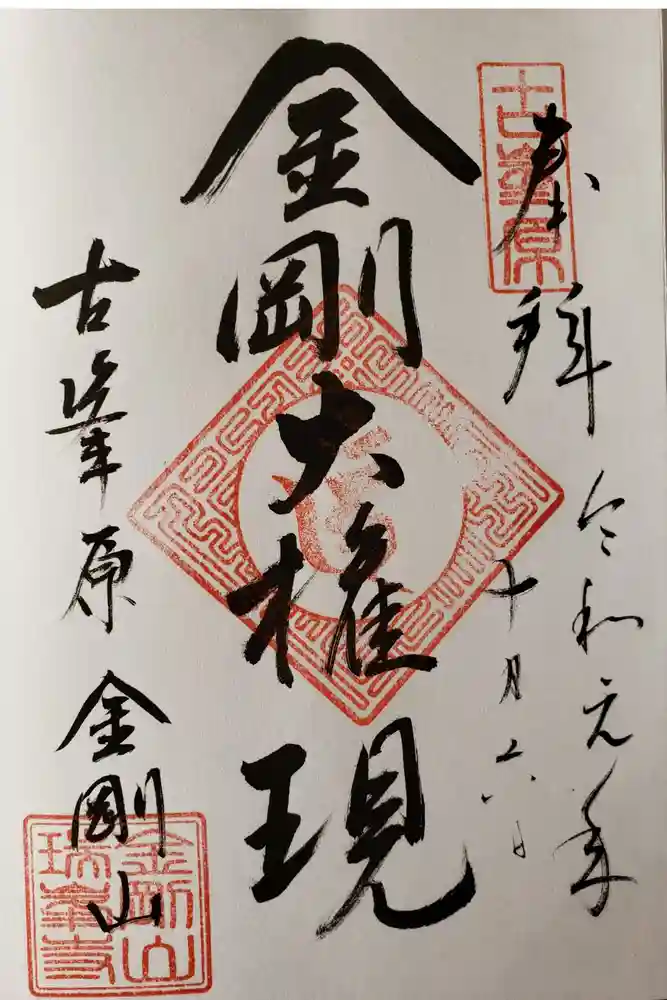 奉拝
令和元年
十月六日
金剛大権現
古峯原 金剛山
古峯原
金剛山
瑞峯寺